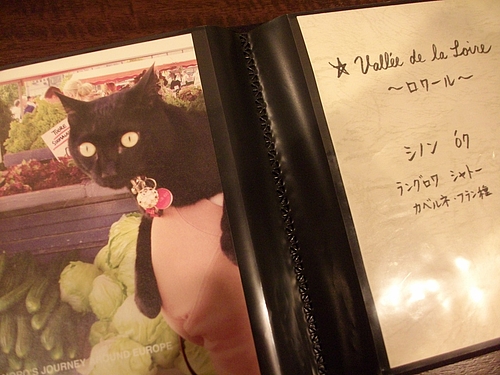 'S JOURNEY AROUND EUROPE
☆ Vallée de la Loire
～ロワール～
シノン '07
ラングロワ シャトー
カベルネ・フラン種